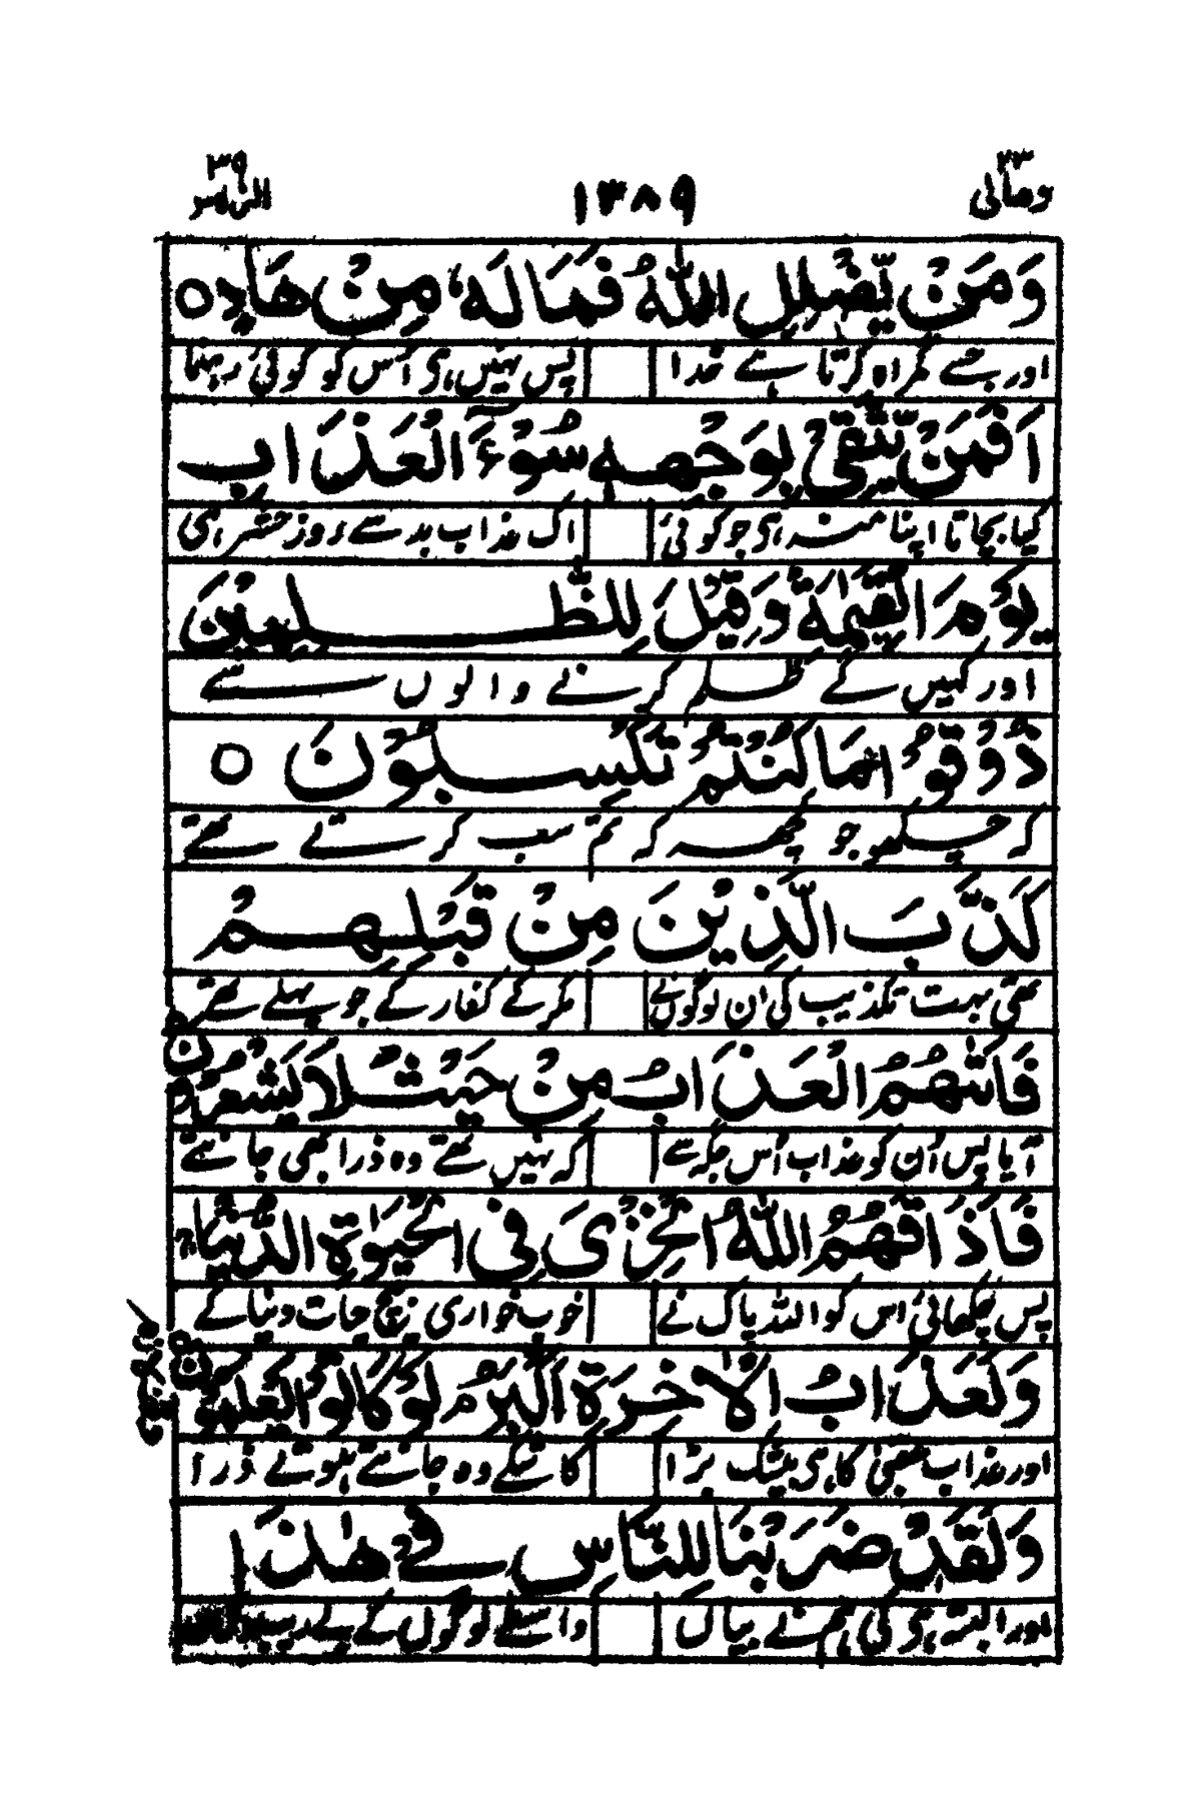 ومالی ۲۳
۱۳۸۹
الزمر ۳۹
وَمَنْ يُّضْلِلِ اللّٰهُ فَمَا لَهٗ مِنْ هَادٍ ○
اور جسے گمراہ کرتا ہے خدا پس نہیں ہی اُس کو کوئی رہنما
اَفَمَنْ يَّتَّقِيْ بِوَجْهِهٖ سُوْٓءَ الْعَذَابِ
کیا بچاتا اپنا منہ ہی جو کوئی اک عذاب بد سے روز حشر ہی
يَوْمَ الْقِيٰمَةِ وَقِيْلَ لِلظّٰلِمِيْنَ
اور کہیں گے ظلم کرنے والوں سے
ذُوْقُوْا مَا كُنْتُمْ تَكْسِبُوْنَ ○
کہ چکھو جو کچھ کہ تم سب کرتے تھے
كَذَّبَ الَّذِيْنَ مِنْ قَبْلِهِمْ
تھی بہت تکذیب کی ان لوگوں نے مکر کے کفار کے جو پہلے تھے
فَاَتٰهُمُ الْعَذَابُ مِنْ حَيْثُ لَا يَشْعُرُوْنَ
آیا پس اُن کو عذاب اُس جگہ سے کہ نہیں تھے وہ ذرا بھی جانتے
فَاَذَاقَهُمُ اللّٰهُ الْخِزْيَ فِي الْحَيٰوةِ الدُّنْيَا
پس چکھائی اس کو اللہ پاک نے خوب خواری بیچ حیات دنیا کے
وَلَعَذَابُ الْاٰخِرَةِ اَكْبَرُ لَوْ كَانُوْا يَعْلَمُوْنَ
اور عذاب عقبیٰ کا ہی بیشک بڑا کاشکے وہ جانتے ہوتے ذرا
وَلَقَدْ ضَرَبْنَا لِلنَّاسِ فِيْ هٰذَا
اور البتہ ہی کی ہم نے بیاں واسطے لوگوں کے